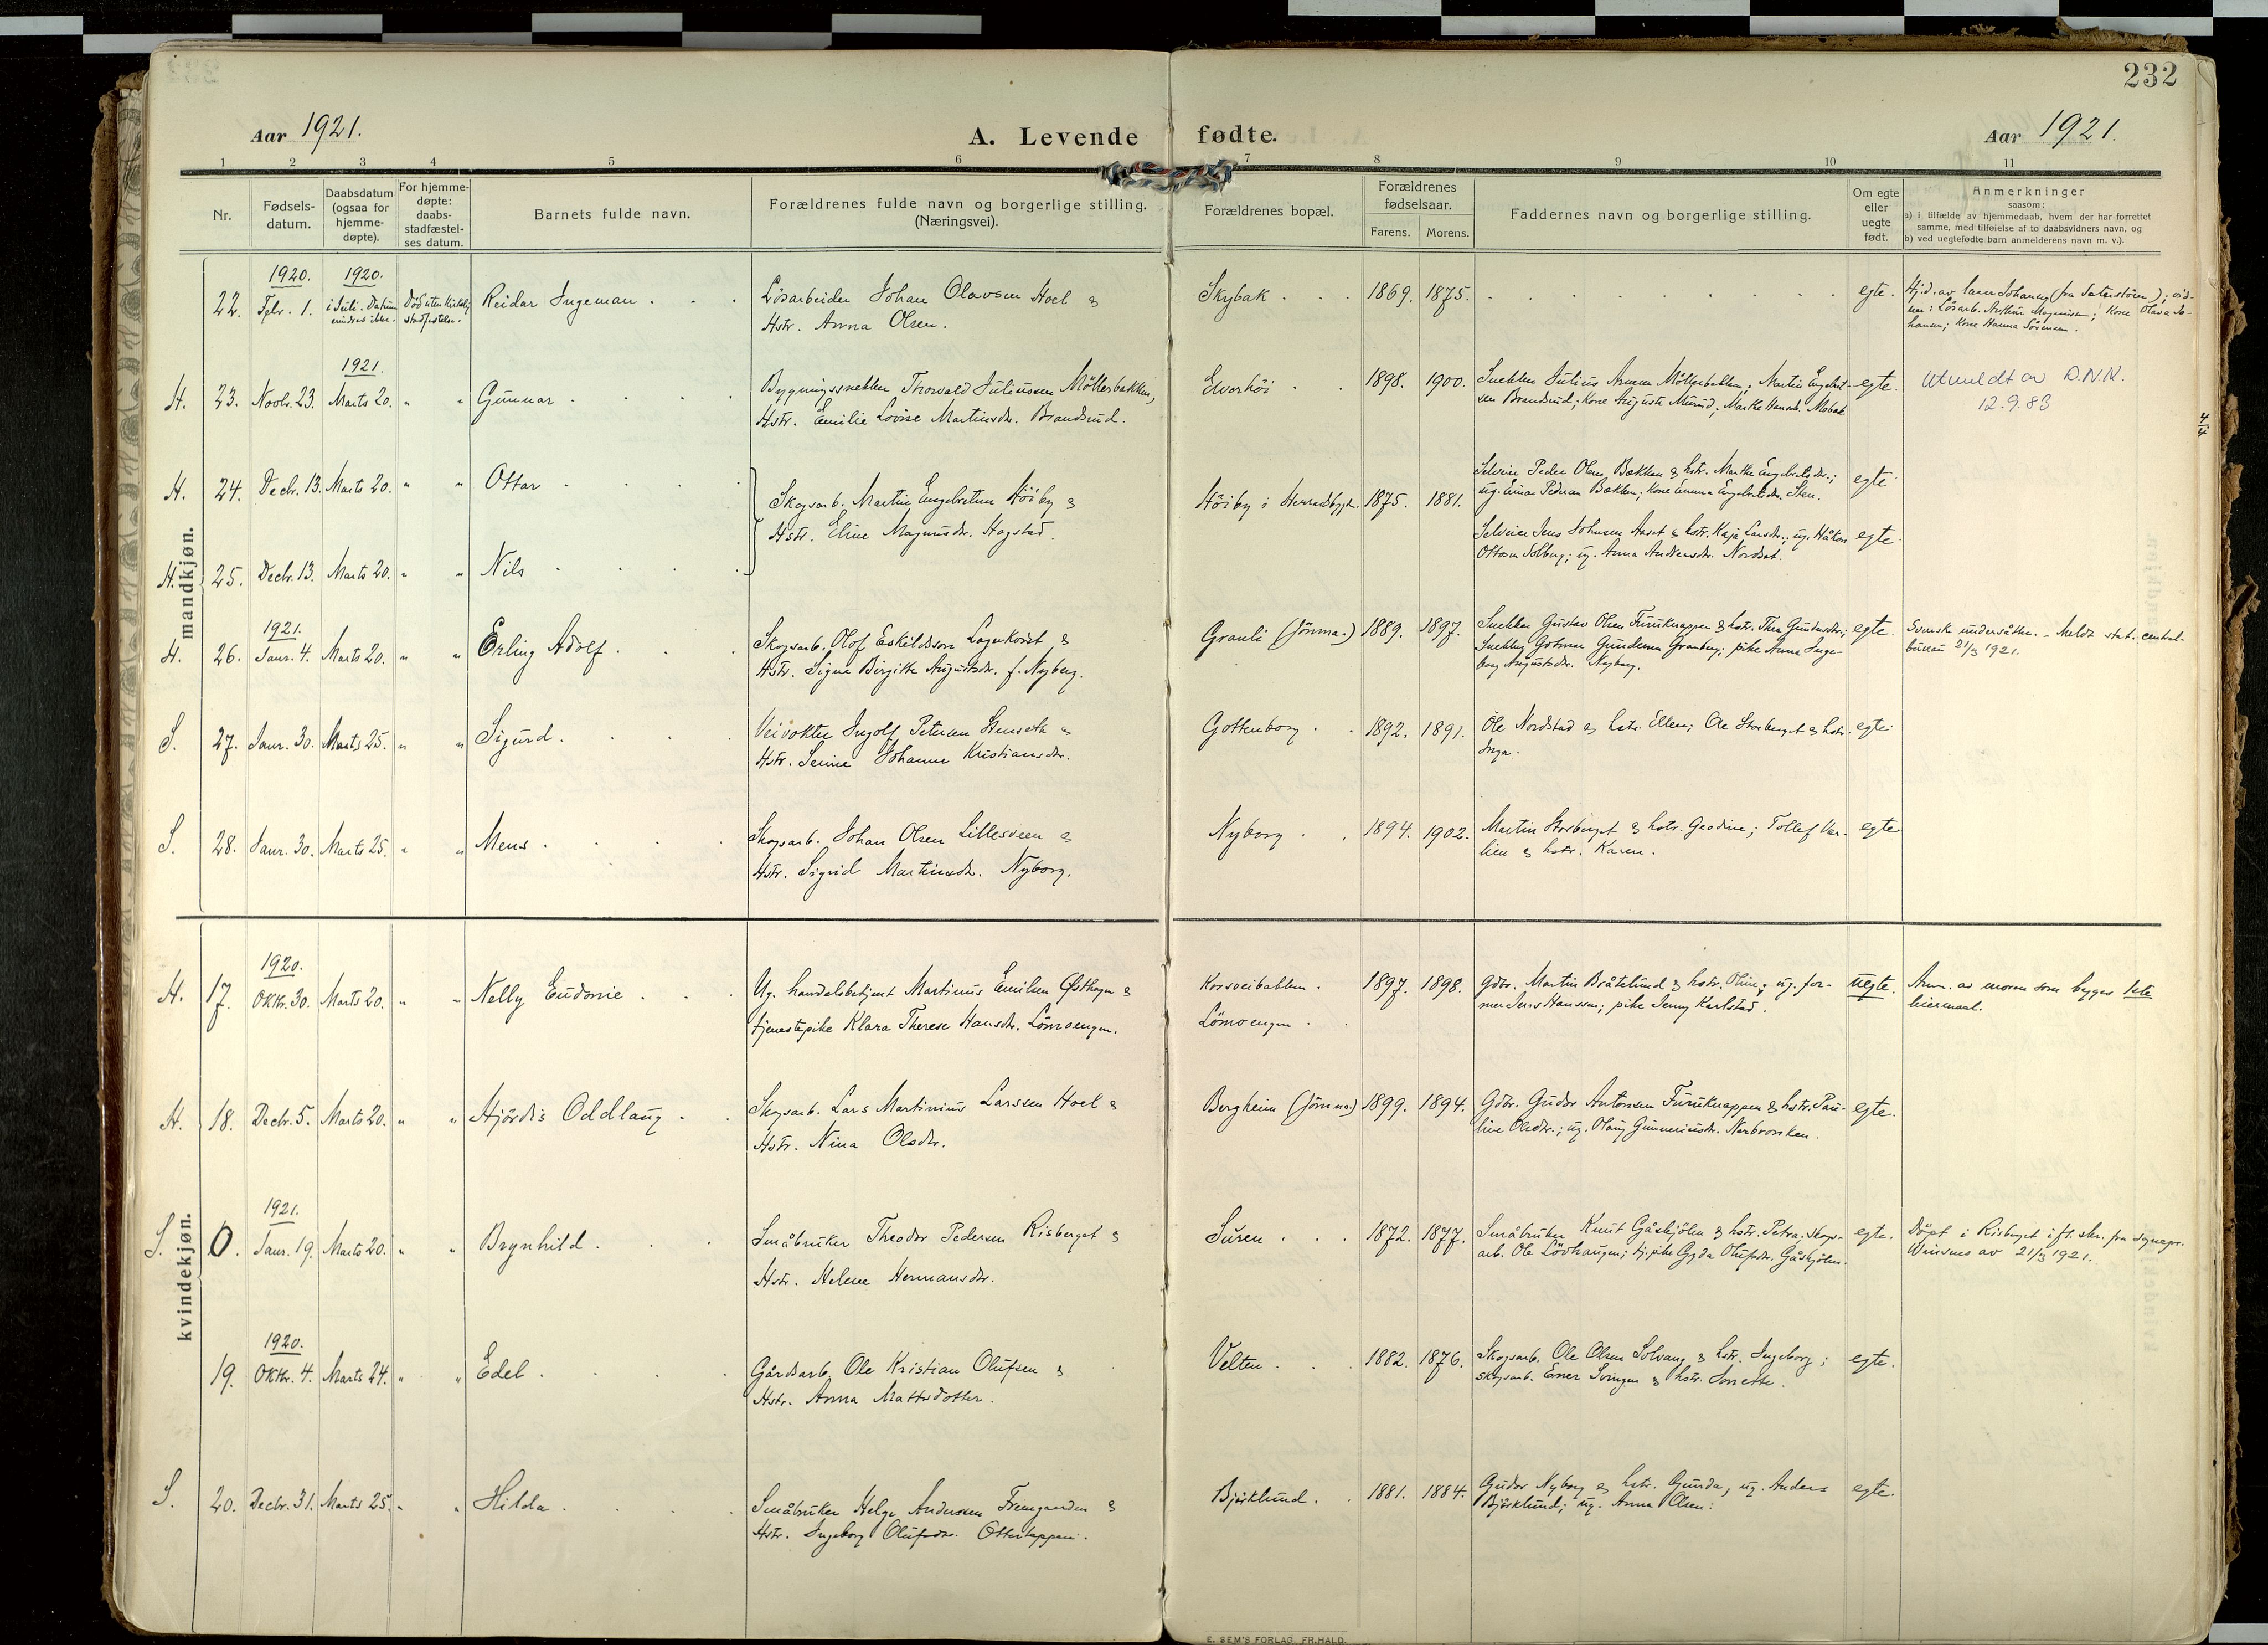 232
Aar 1921.
A. Levende fødte.
Aar 1921.
1 2 3 4 5 6 7 8 9 10 11
Nr.
Fødsels-
datum.
Daabsdatum
(ogsaa for
hjemme-
døpte).
For hjemme-
døpte:
daabs-
stadfæstel-
ses datum.
Barnets fulde navn.
Forældrenes fulde navn og borgerlige stilling.
(Næringsvei).
Forældrenes bopæl.
Forældrenes
fødselsaar.
Farens. Morens.
Faddernes navn og borgerlige stilling.
Om egte
eller
uegte
født.
Anmerkninger
saasom:
a) i tilfælde av hjemmedaab, hvem der har forrettet
samme, med tilføielse af to daabsvidners navn, og
b) ved uegtefødte barn anmelderens navn m. v.).
mandkjøn.
1920. 1920.
22. Febr. 1. i Juli. Datum
Reidar Ingeman
Lösarbeider Johan Olavsen Hoel &
Hstr. Anna Olsen.
Skybak 1869. 1875. egte.
Hj.d. av
Kone Hanna Sörensen.
1921.
H. 23. Novbr. 23. Marts 20. " " Gunnar
Bygningssnekker Thorvald Juliussen Möllerbakken,
Hstr. Emilie Lovise Martinsdr. Brandsrud.
Elverhöi 1898. 1900.
Snekker Julius Møllerbakken; Martin Engebret-
sen Brandsrud; Kone Auguste Murud; Marthe Hansdr.
egte.
Utmeldt av D.N.K.
12.9.83
4/4
H. 24. Decbr. 13. Marts 20. " " Ottar
Skogsarb. Martin Engebretsen Höiby &
Hstr. Eline Magnusdr. Hagstad.
Höiby i Herradsbygd. 1875. 1881.
Selveier Peder Olsen Bækken & hstr. Marthe Engebretsdr.;
ug. Einar Pedersen Bækken; Kone Emma Engebretsdr.
egte
H. 25. Decbr. 13. Marts 20. " " Nils
Selveier Jens Johnsen Aaset & hstr. Kaja Larsdr.; ug. Håkon
Ottosen Solberg; ug. Anna Andersdr. Nordset.
egte
1921.
H. 26. Janr. 4. Marts 20. " " Erling Adolf
Skogsarb. Olof Eskildsson Lagerkvist &
Hstr. Signe Birgitte Augustsdr. f. Nyberg.
Granli (Jömna.) 1889. 1897.
Snekker Gustav Olsen Furuknappen & hstr. Thea Gundersdr.;
Snekker Gotmar Gundersen Granberg; pike Anna Inge-
borg Augustsdr. Nyberg.
egte.
Svenske undersåtter. - Meldt stat. central-
bureau 21/3 1921.
S. 27. Janr. 30. Marts 25. " " Sigurd.
Veivokter Ingolf Petersen Stenseth &
Hstr. Senine Johanne Kristiansdr.
Gottenborg 1892. 1891.
Ole Nordstad & hstr. Ellen; Ole Storberget & hstr.
Inga.
egte
S. 28. Janr. 30. Marts 25. " " Mens
Skogsarb. Johan Olsen Lillesveen &
Hstr. Sigrid Martinsdr. Nyborg.
Nyborg 1894. 1902.
Martin Storberget & hstr. Geodine; Tollef Var-
lien & hstr. Karen.
egte
kvindekjøn.
1920.
H. 17. Oktbr. 30. Marts 20. " " Nelly Eudonie
Ug. handelsbetjent Martinus Emilsen Østhagen &
tjenestepike Klara Therese Hansdr. Lömoengen.
Korsveibakken.
Lömoengen.
1897. 1898.
Gdbr. Martin Bråtelund & hstr. Oline; ug. for-
mer Jens Hanssen; pike Jenny Karlstad.
uegte.
Anm. av moren som begges 1ste
leiermaal.
H. 18. Decbr. 5. Marts 20. " " Hjördis Oddlaug
Skogsarb. Lars Martinius Larssen Hoel &
Hstr. Nina Olsdr.
Bergheim (Jömna) 1899. 1894.
Gdbr. Gudor Antonsen Furuknappen & hstr. Pau-
line Olsdr.; ug. Olaug Gunneriusdr.
egte.
1921.
S. 0. Janr. 19. Marts 20. " " Brynhild
Småbruker Theodor Pedersen Risberget &
Hstr. Helene Hermansdr.
Suren 1872. 1877.
Småbruker Knut Gåskjölen & hstr. Petra; skogs-
arb. Ole Lövhaugen; tj.pike Gyda Olufsdr. Gåskjölen.
egte.
Döpt i Risberget ift. skr. fra sognepr.
av 21/3 1921.
1920.
19. Oktbr. 4. Marts 24. " " Edel
Gårdsarb. Ole Kristian Olufsen &
Hstr. Anna Mattsdotter.
Velten 1882. 1876.
Skogsarb. Ole Olsen Solvang & hstr. Ingeborg;
skogsarb. Ener Svingen & hstr.
egte.
S. 20. Decbr. 31. Marts 25. " " Hilda
Småbruker Helge Andersen Fremgarden &
Hstr. Ingeborg Olufsdr. Otterteppen.
Björklund. 1881. 1884.
Gudor Nyborg & hstr. Gunda; ug. Anders
Björklund; ug. Anna Olsen.
egte.
E. SEM'S FORLAG, FR.HALD.